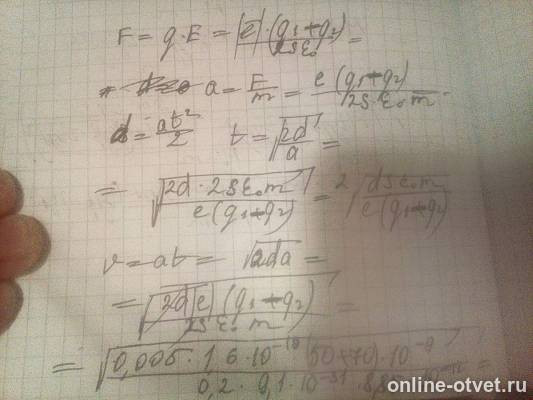 F = q·E = |e|·(q₁+q₂) / 2Sε₀ =
a = F/m = e(q₁+q₂) / 2S·ε₀m
d = at²/2 t = √(2d/a) =
= √(2d·2Sε₀m / e(q₁+q₂)) = 2√(dSε₀m / e(q₁+q₂))
v = at = √(2da) =
= √(2d|e|(q₁+q₂) / 2Sε₀m) =
= √(0,005·1,6·10⁻¹⁹(50+70)·10⁻⁹ / 0,2·9,1·10⁻³¹·8,85·10⁻¹²) =
online-otvet.ru